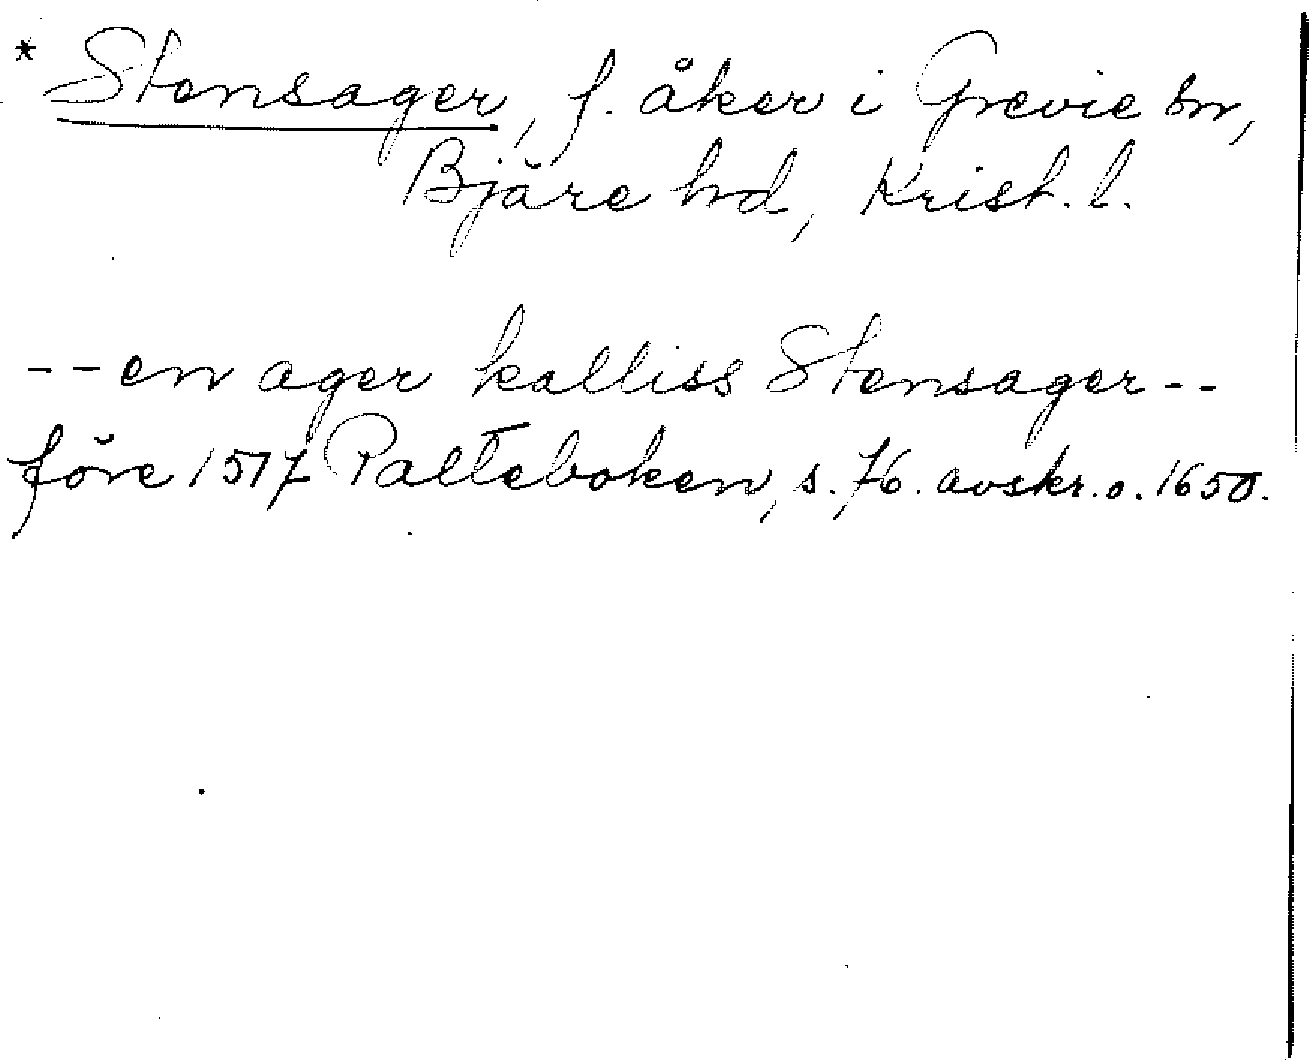 * Stensager, f. åker i Grevie sn,
Bjäre hd, Krist. l.
-- en ager kalliss Stensager --
före 1517 Palteboken, s. 76. avskr. o. 1650.